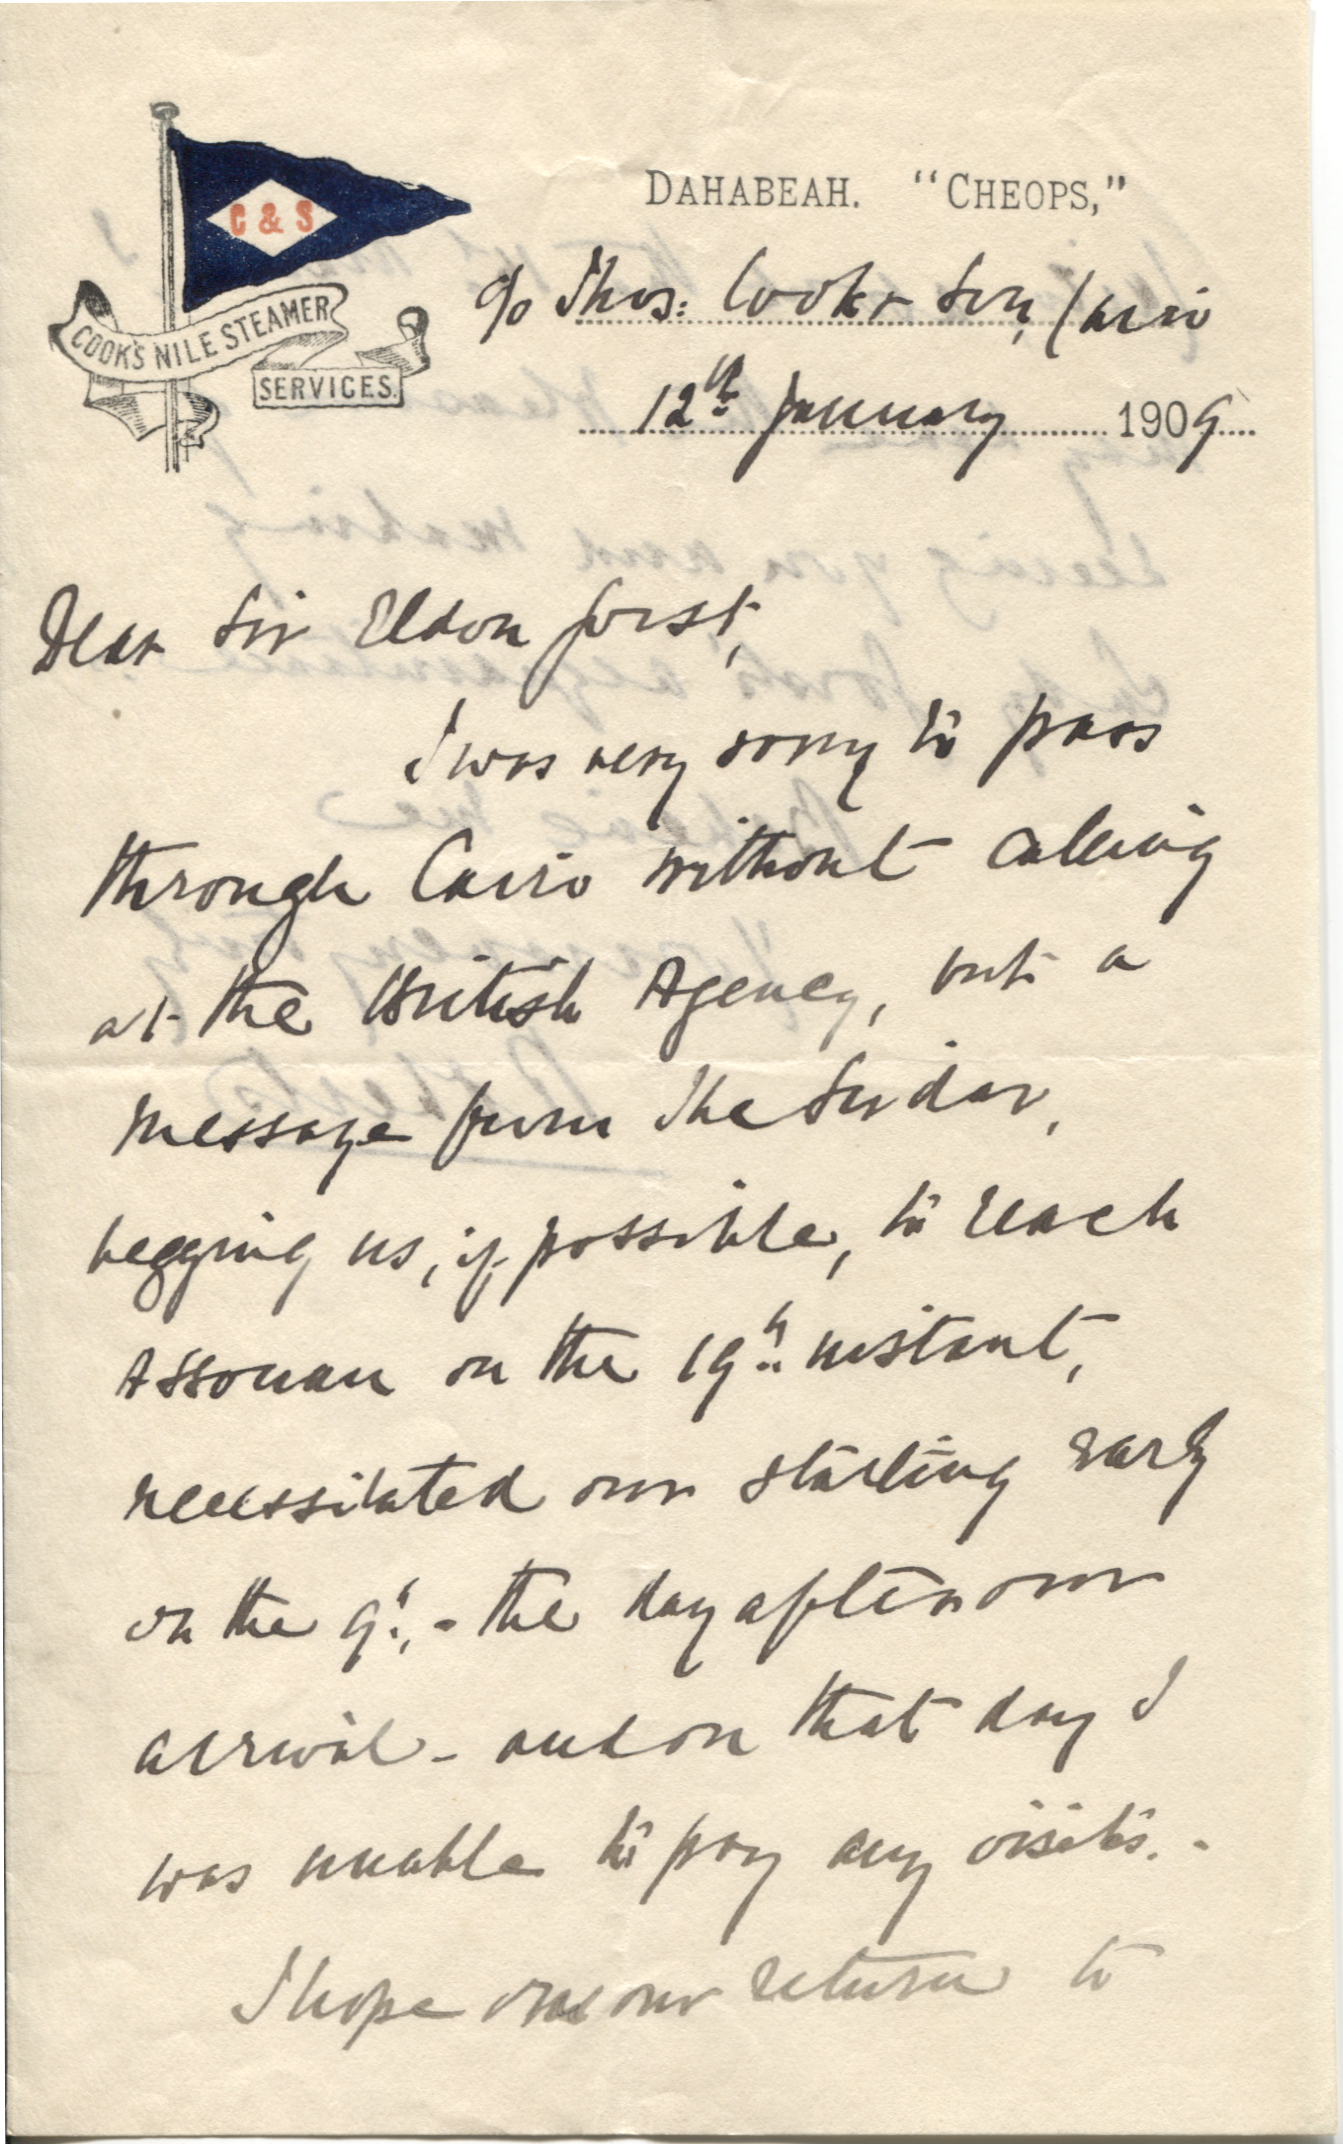 DAHABEAH. "CHEOPS,"
C & S
COOK'S NILE STEAMER
SERVICES.
c/o Thos: Cook & Son, Cairo
12th January 1909
Dear Sir Eldon Gorst,
I was very sorry to pass
through Cairo without calling
at the British Agency, but a
message from The Sirdar,
begging us, if possible, to reach
Assouan on the 19th instant,
necessitated our starting early
on the 9th, - the day after our
arrival - and on that day I
was unable to pay any visits. -
I hope on our return to